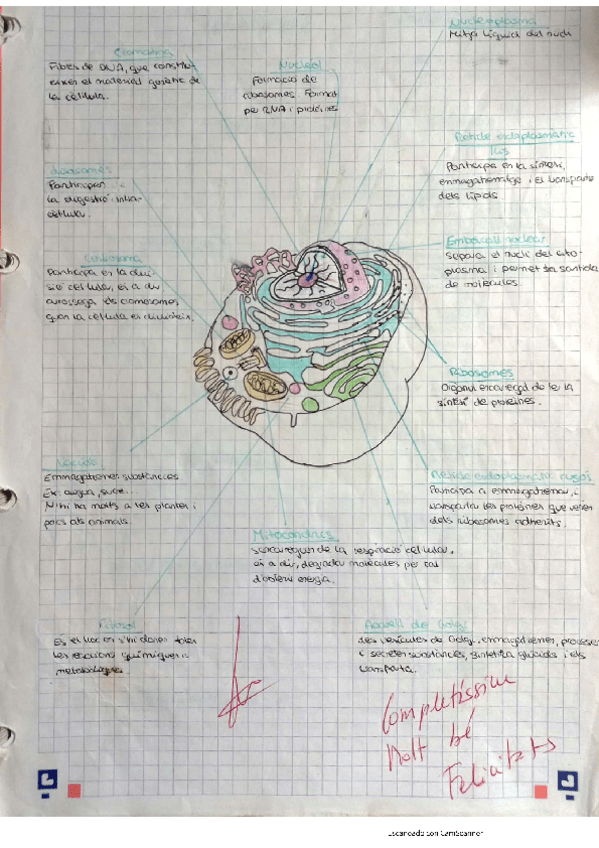 Nucleoplasma
Mitjà líquid del nucli
Cromatina
Fibres de DNA, que constitu-
eixen el material genètic de
la cèl·lula.
Nuclèol
Formació de
ribosomes. Format
per RNA i proteïnes
Reticle endoplasmàtic
llis
Participa en la síntesi,
emmagatzematge i el transport
dels lípids.
Lisosomes
Participen
la digestió intra-
cel·lular.
Embolcall nuclear
Separa el nucli del cito-
plasma i permet la sortida
de molècules.
Centrosoma
Participa en la divi-
sió cel·lular, és a dir
els cromosomes
quan la cèl·lula es divideix.
Ribosomes
Orgànul encarregat de fer la
síntesi de proteïnes.
Vacúol
Emmagatzemen substàncies
Ex: aigua, sucre...
N'hi ha molts a les plantes i
pocs als animals.
Reticle endoplasmàtic rugós
Participa a emmagatzemar, i
transporta les proteïnes que venen
dels ribosomes adherits.
Mitocondris
S'encarreguen de la respiració cel·lular,
és a dir, degradar molècules per tal
d'obtenir energia.
Citosol
És el lloc on s'hi donen totes
les reaccions químiques
metabòliques
Aparell de Golgi
Les vesícules de Golgi, emmagatzemen, processen
i secreten substàncies, sintetitza glúcids i els
transporta.
Completíssim
Molt bé
Felicitats
Escaneado con CamScanner